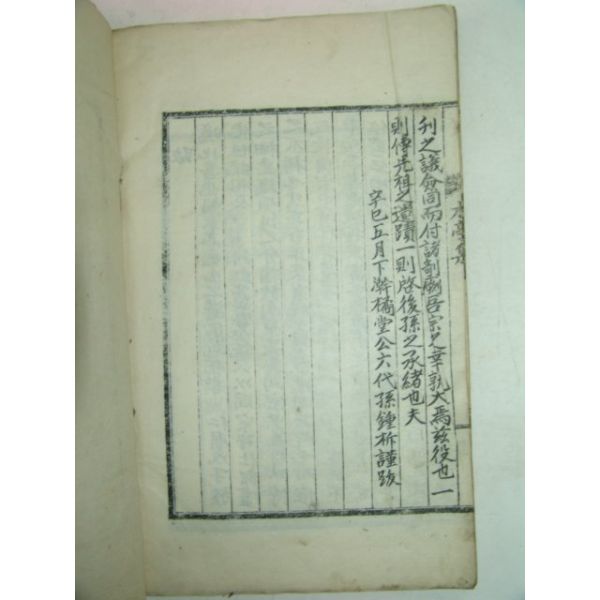 刊之議僉同而付諸剞劂吾宗之幸孰大焉茲役也一
則傳先祖之遺蹟一則啓後孫之承緖也夫
辛巳五月下澣橘堂公六代孫鍾 謹跋
亭集